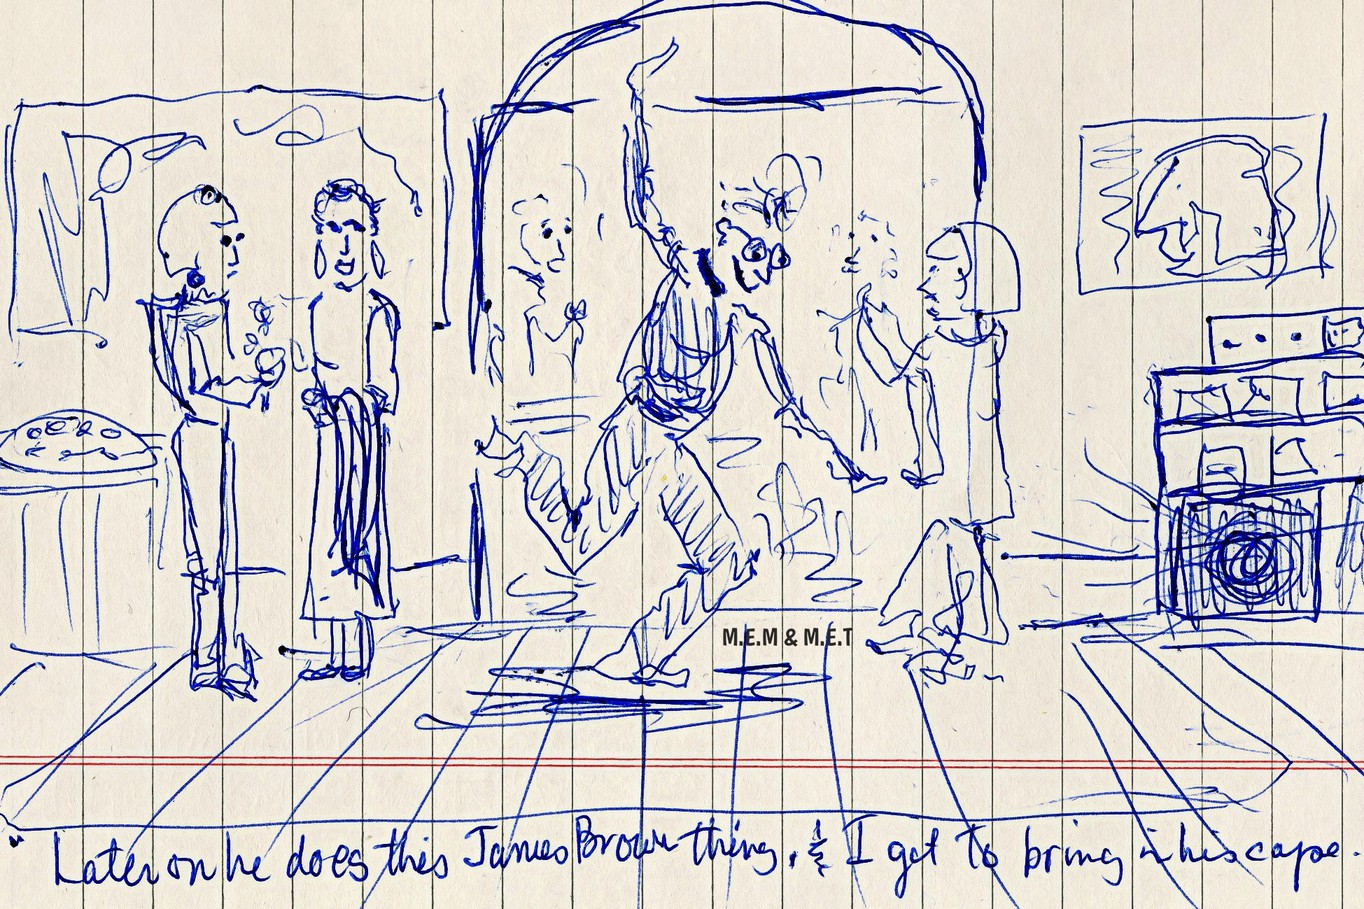 M.E.M & M.E.T
Later on he does this James Brown thing, & I get to bring in his cape.